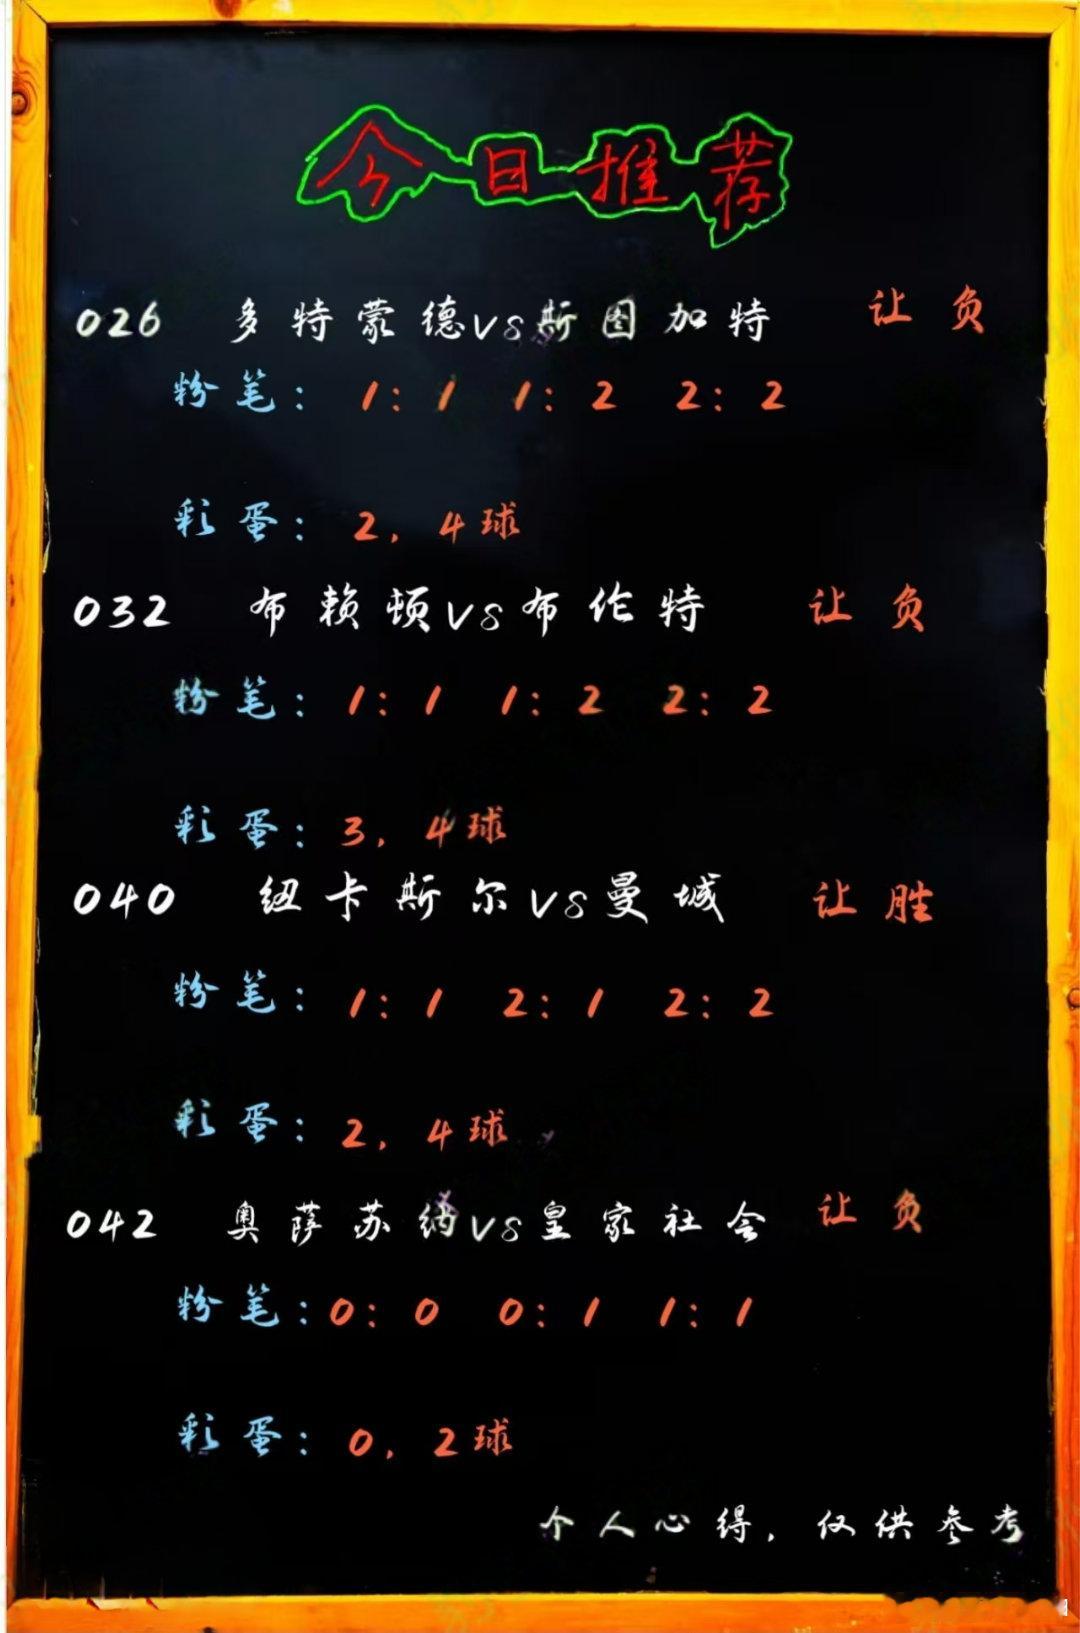 今日推荐
026 多特蒙德VS斯图加特 让负
粉笔: 1:1 1:2 2:2
彩蛋: 2, 4球
032 布赖顿VS布伦特 让负
粉笔: 1:1 1:2 2:2
彩蛋: 3, 4球
040 纽卡斯尔VS曼城 让胜
粉笔: 1:1 2:1 2:2
彩蛋: 2, 4球
042 奥萨苏纳VS皇家社会 让负
粉笔:0:0 0:1 1:1
彩蛋: 0, 2球
个人心得, 仅供参考